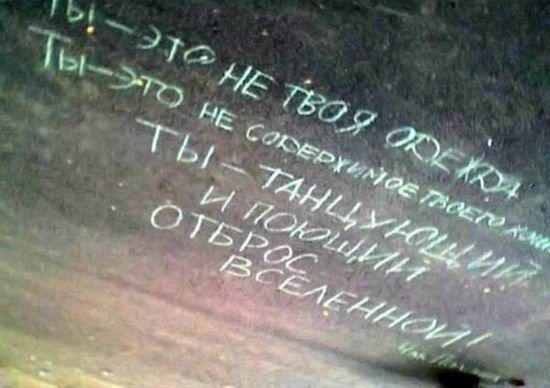 ТЫ – ЭТО НЕ ТВОЯ ОДЕЖДА
ТЫ – ЭТО НЕ СОДЕРЖИМОЕ ТВОЕГО
ТЫ – ТАНЦУЮЩИЙ
И ПОЮЩИЙ
ОТБРОС
ВСЕЛЕННОЙ!
Чак